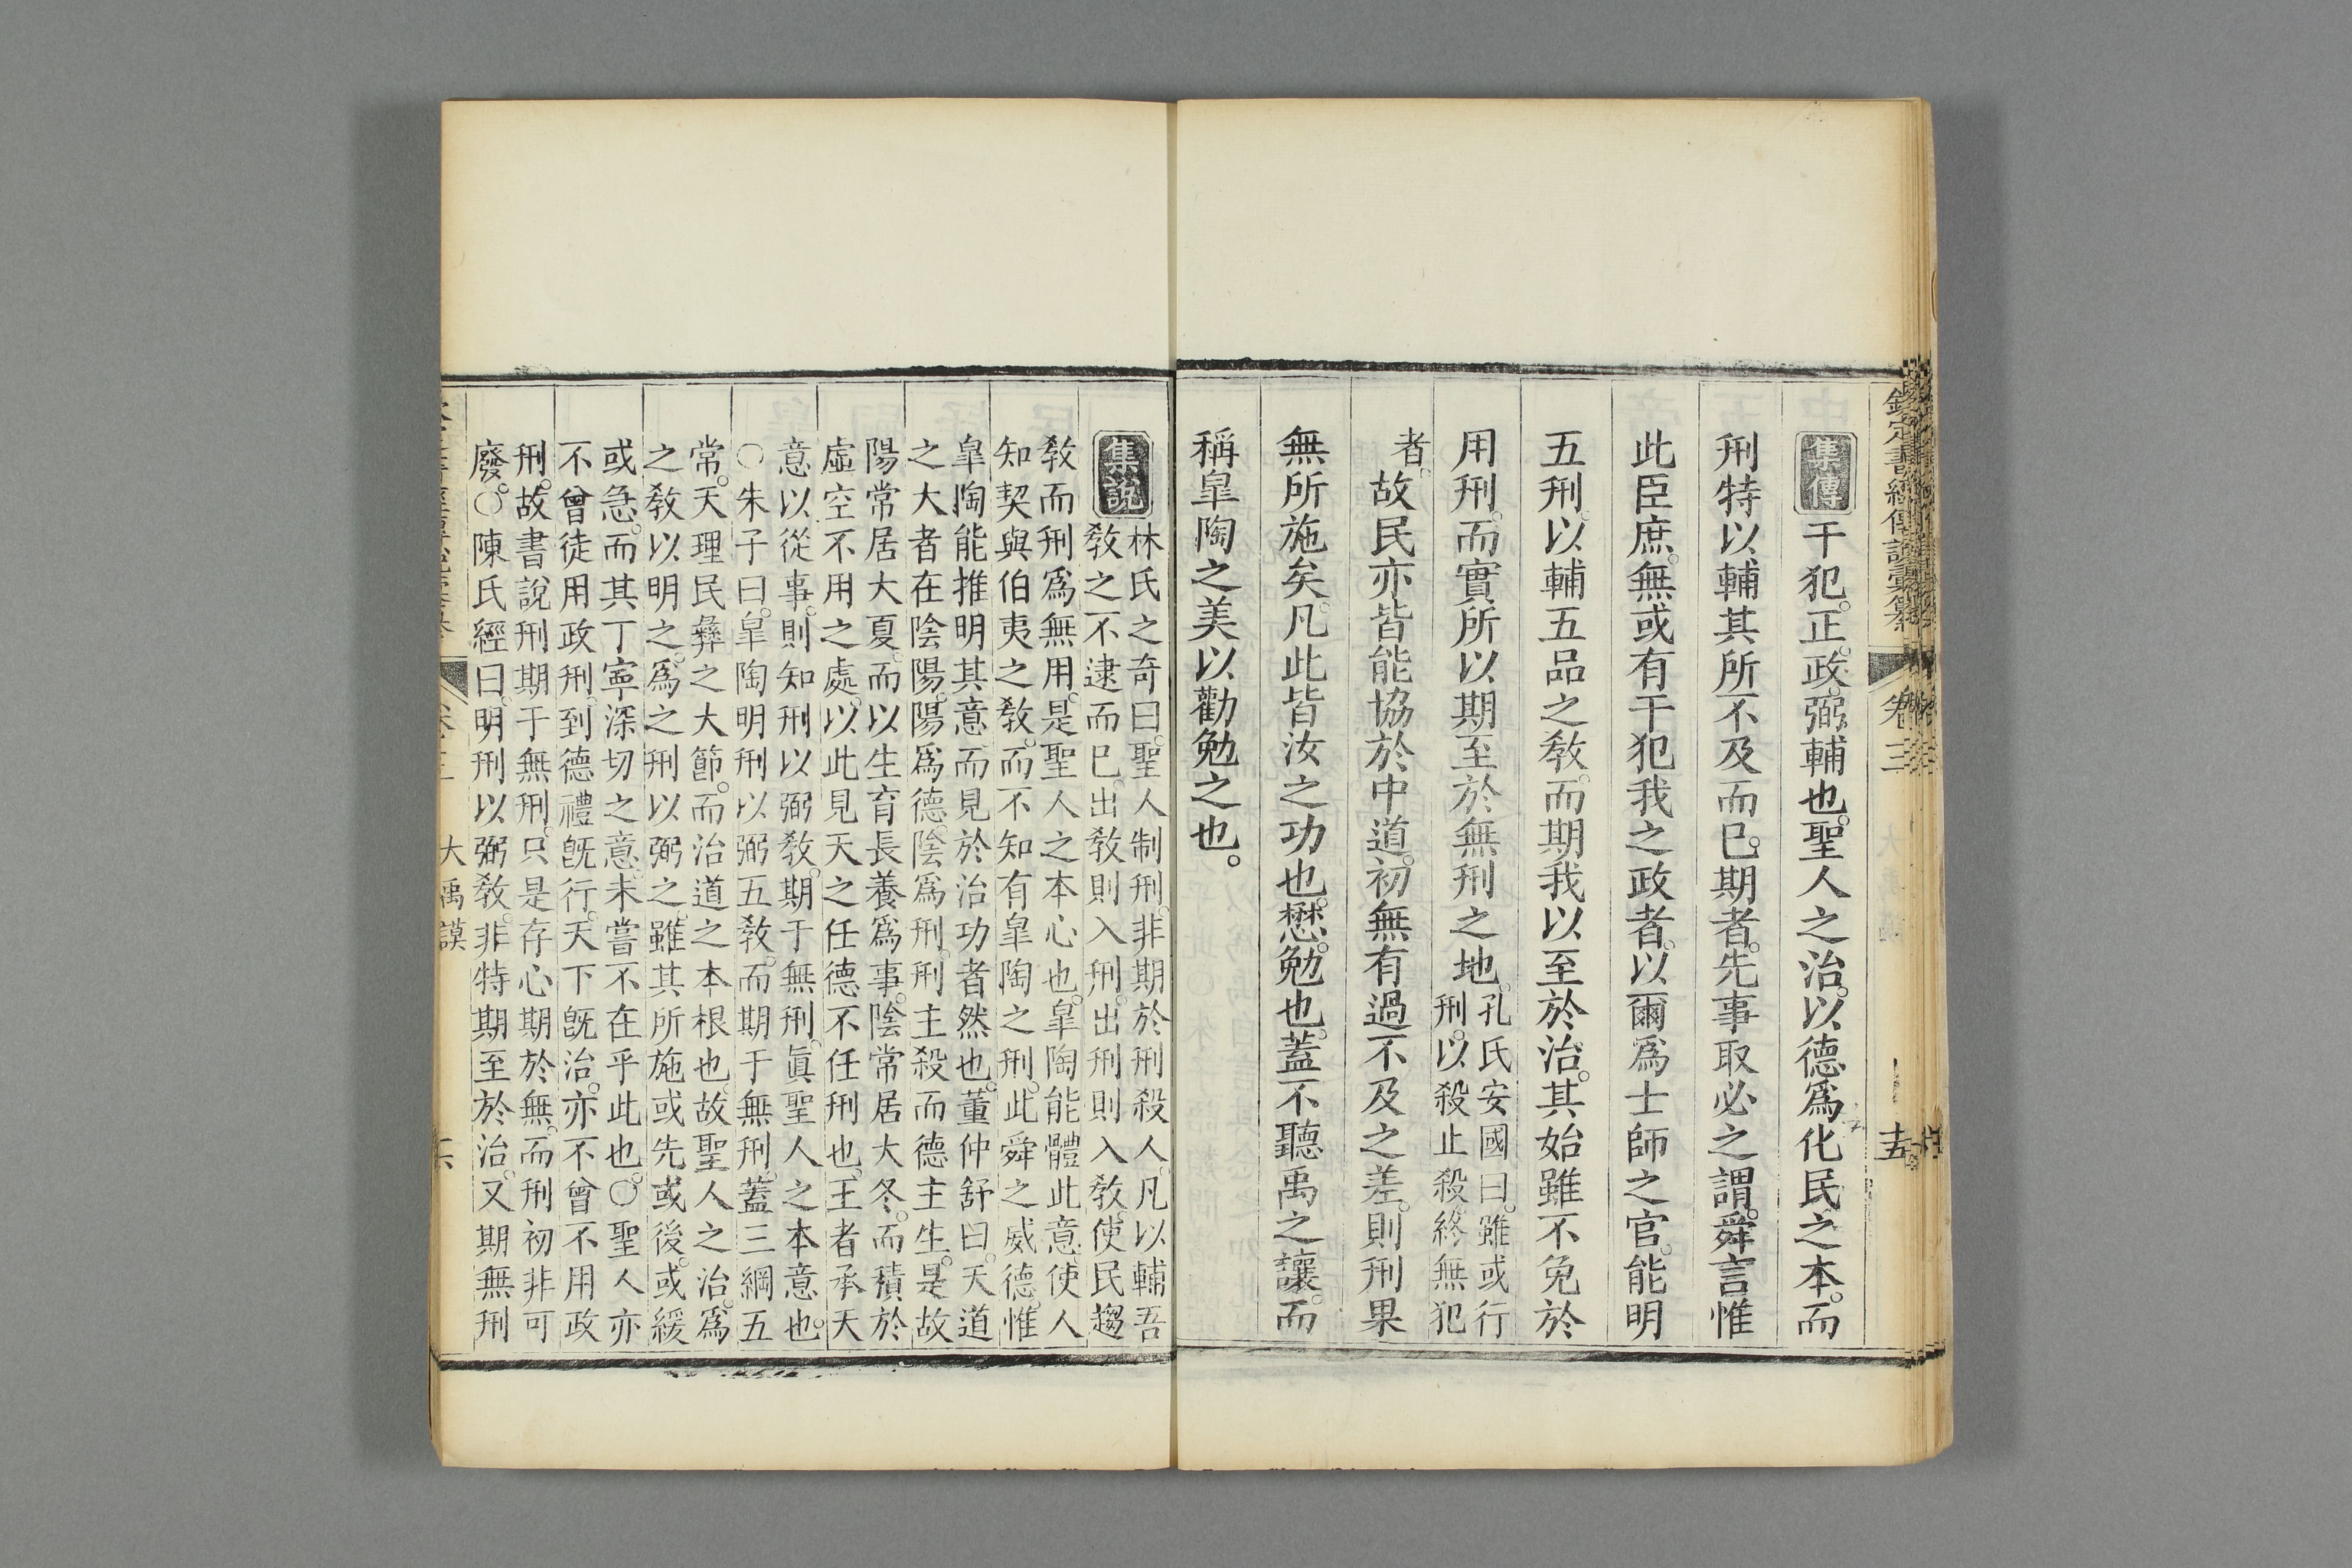 欽定書經傳說彙纂
卷三
十五
集傳 干犯。正。政。弼。輔也。聖人之治。以德爲化民之本。而
刑特以輔其所不及而已。期者。先事取必之謂。舜言惟
此臣庶。無或有干犯我之政者。以爾爲士師之官。能明
五刑。以輔五品之敎。而期我以至於治。其始雖不免於
用刑。而實所以期至於無刑之地。
孔氏安國曰。雖或行
刑。以殺止殺。終無犯
者。
故民亦皆能協於中道。初無有過不及之差。則刑果
無所施矣。凡此皆汝之功也。懋。勉也。蓋不聽禹之讓。而
稱皐陶之美以勸勉之也。
集說
林氏之奇曰。聖人制刑。非期於刑殺人。凡以輔吾
敎之不逮而已。出敎則入刑。出刑則入敎。使民趨
敎而刑爲無用。是聖人之本心也。皐陶能體此意。使人
知契與伯夷之敎。而不知有皐陶之刑。此舜之威德。惟
皐陶能推明其意而見於治功者然也。董仲舒曰。天道
之大者在陰陽。陽爲德。陰爲刑。刑主殺而德主生。是故
陽常居大夏。而以生育長養爲事。陰常居大冬。而積於
虛空不用之處。以此見天之任德不任刑也。王者承天
意以從事。則知刑以弼敎。期于無刑。眞聖人之本意也。
○朱子曰。皐陶明刑以弼五敎。而期于無刑。蓋三綱五
常。天理民彝之大節。而治道之本根也。故聖人之治。爲
之敎以明之。爲之刑以弼之。雖其所施或先或後。或緩
或急。而其丁寧深切之意。未嘗不在乎此也。○聖人亦
不曾徒用政刑。到德禮旣行。天下旣治。亦不曾不用政
刑。故書說刑期于無刑。只是存心期於無。而刑初非可
廢。○陳氏經曰。明刑以弼敎。非特期至於治。又期無刑
大禹謨